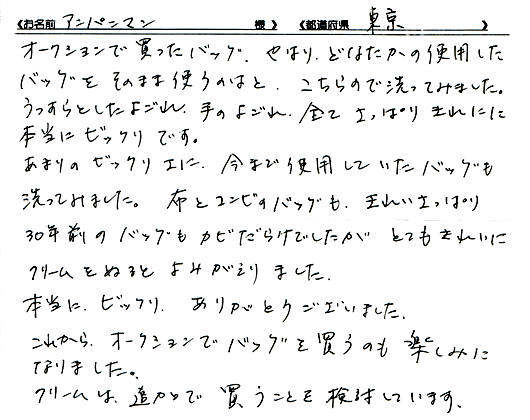 《お名前 アンパンマン 様 》 《都道府県 東京 》
オークションで買ったバッグ、やはり、どなたかの使用した
バッグを そのまま使うのはと、こちらので洗ってみました。
うっすらとしたよごれ、手のよごれ、全て さっぱり きれいに
本当に ビックリ です。
あまりの ビックリ さに、今まで使用していたバッグも
洗ってみました。 布とコンビのバッグも、きれいさっぱり
30年前の バッグも カビだらけでしたが とてもきれいに
クリームをぬると よみがえりました。
本当に、ビックリ、ありがとうございました。
これから、オークションで バッグを 買うのも 楽しみに
なりました。
クリームは、追加で 買うことを 検討しています。